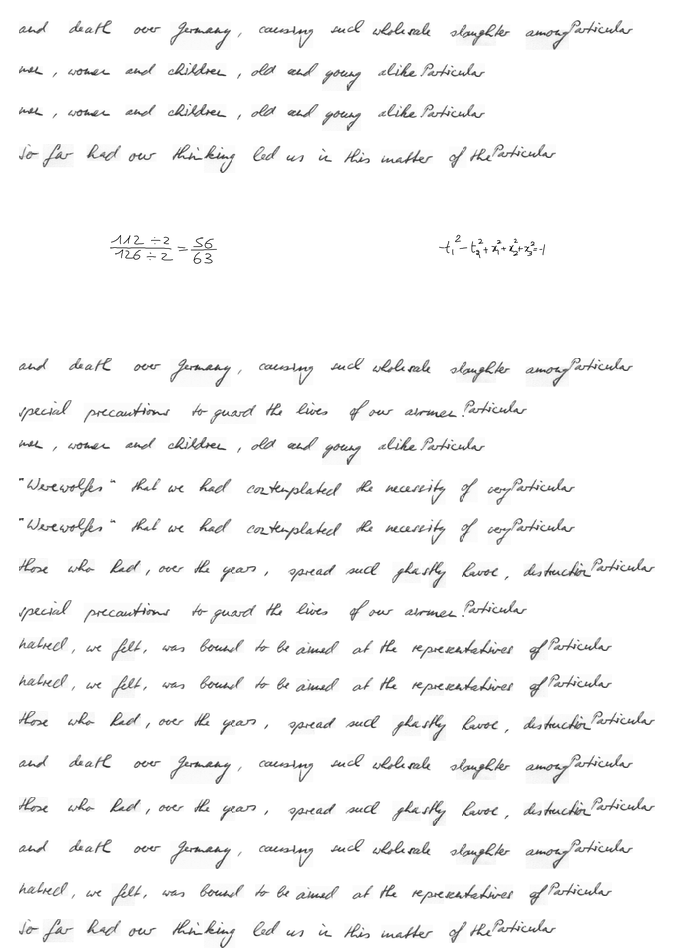 and death over Germany, causing such wholesale slaughter among Particular
men, women and children, old and young alike Particular
men, women and children, old and young alike Particular
So far had our thinking led us in this matter of the Particular
112 ÷ 2 / 126 ÷ 2 = 56 / 63    t₁² - t₂² + x₁² + x₂² + x₃² = -1
and death over Germany, causing such wholesale slaughter among Particular
special precautions to guard the lives of our airmen. Particular
men, women and children, old and young alike Particular
"Werewolfes" that we had contemplated the necessity of very Particular
"Werewolfes" that we had contemplated the necessity of very Particular
those who had, over the years, spread such ghastly havoc, destruction Particular
special precautions to guard the lives of our airmen. Particular
hatred, we felt, was bound to be aimed at the representatives of Particular
hatred, we felt, was bound to be aimed at the representatives of Particular
those who had, over the years, spread such ghastly havoc, destruction Particular
and death over Germany, causing such wholesale slaughter among Particular
those who had, over the years, spread such ghastly havoc, destruction Particular
and death over Germany, causing such wholesale slaughter among Particular
hatred, we felt, was bound to be aimed at the representatives of Particular
So far had our thinking led us in this matter of the Particular